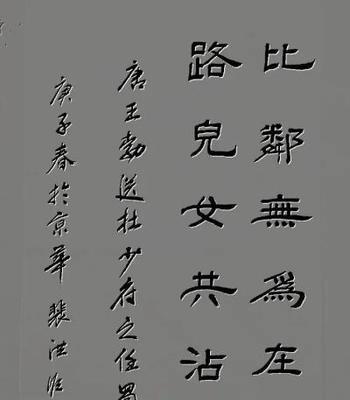 比鄰無為在
路兒女共沾
唐王勃送杜少府之任蜀
庚子春於京華裴洪